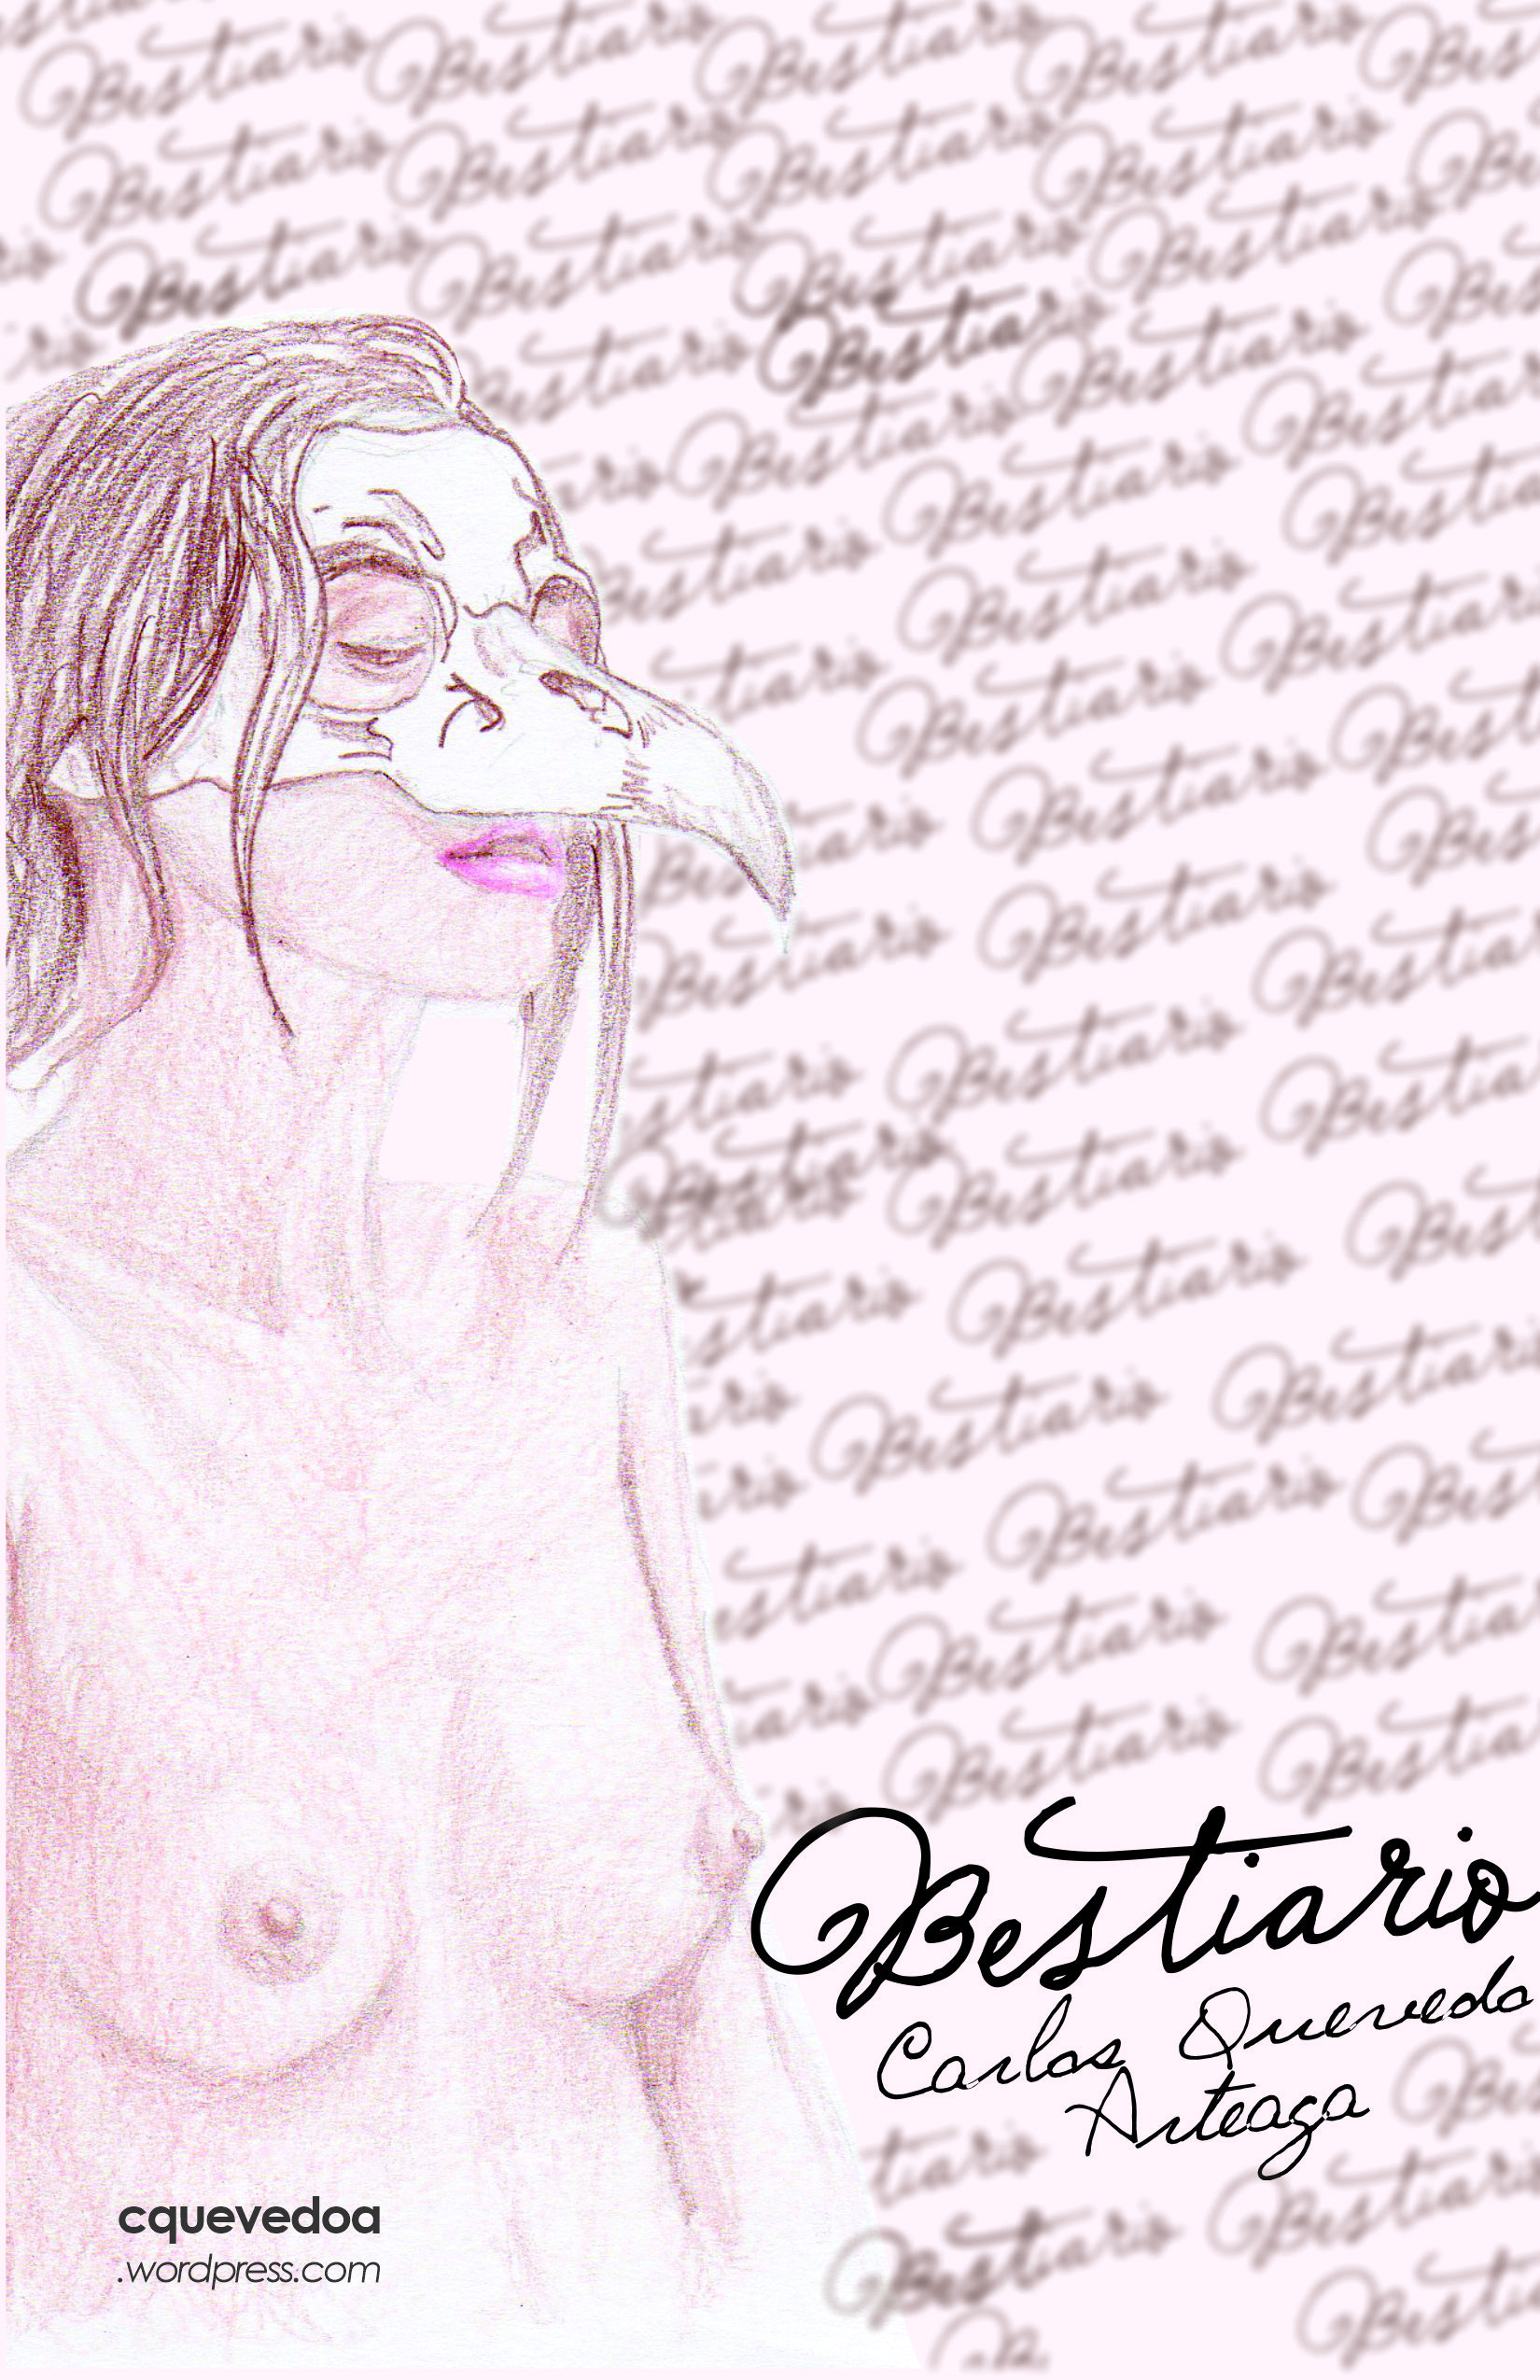 Bestiario
Carlos Quevedo
Arteaga
cquevedoa
.wordpress.com